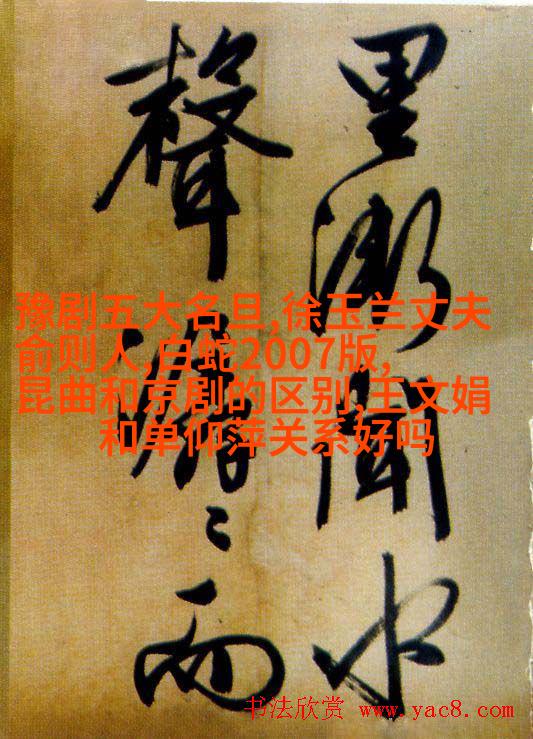 里漸聞水
聲潺〻而
豫剧五大名旦,徐玉兰丈夫
俞则人,白蛇2007版,
昆曲和京剧的区别,王文娟
和单仰萍关系好吗
书法欣赏 www.yac8.com